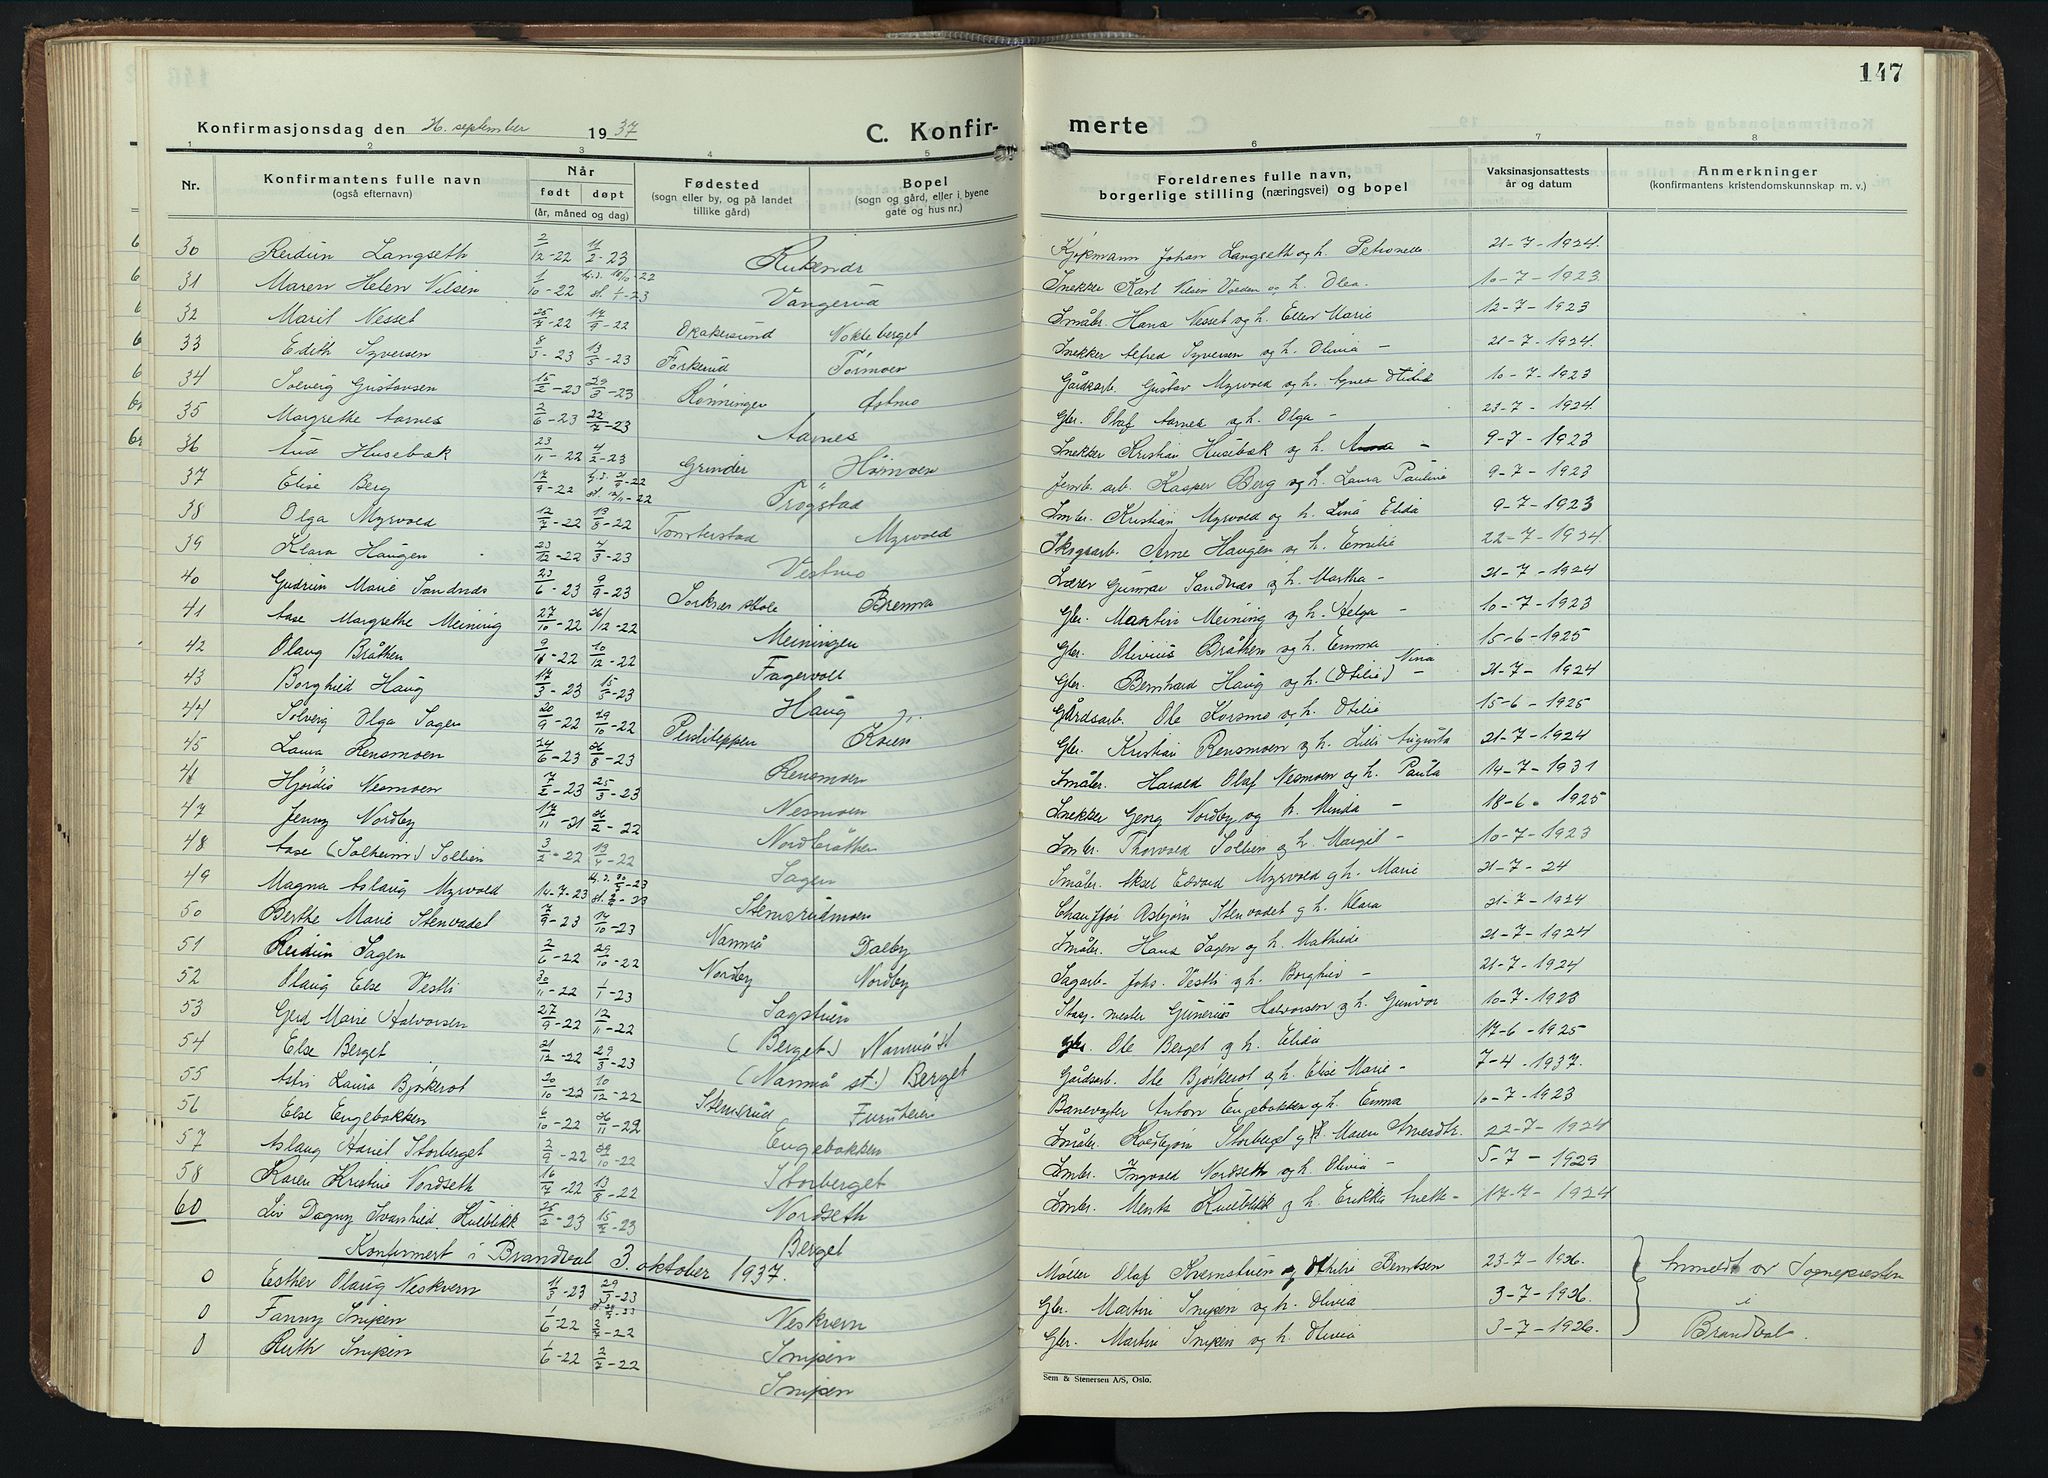 147
Konfirmasjonsdag den 26. september 1937 C. Konfir- merte
1 2 3 4 5 6 7 8
Nr. Konfirmantens fulle navn (også efternavn) Når født døpt (år, måned og dag) Fødested (sogn eller by, og på landet tillike gård) Bopel (sogn og gård, eller i byene gate og hus nr.) Foreldrenes fulle navn, borgerlige stilling (næringsvei) og bopel Vaksinasjonsattests år og datum Anmerkninger (konfirmantens kristendomskunnskap m. v.)
30 Reidun Langseth 2/12-22 11/2-23 Kjøpmann Johan Langseth og h. Petronelle 21-7-1924.
31 Maren Helen Nilsen 1/10-22 Vangerud Snekker Karl Nilsen og h. Olea 10-7-1923
32 Marit Nesset 25/7-22 17/9-22 Nokleberget Småbr. Hans Nesset og h. Ellen Marie 12-7-1923
33 Edith Syversen 8/3-23 13/5-23 Forkerud Tormoen Snekker Alfred Syversen og h. Olivia - 21-7-1924.
34 Solveig Gustavsen 15/2-23 29/3-23 Rønningen Østmo Gårdsarb. Gustav Myrvold og h. Agnes 10-7-1923
35 Margrethe Aarnes 2/6-23 22/7-23 Aarnes Gbr. Olaf Aarnes og h. Olga - 23-7-1924.
36 Aud Husebæk 23/11-22 4/2-23 Grinder Hómoen Snekker Kristian Husebæk og h. - 9-7-1923
37 Elise Berg 17/9-22 Trøgstad Jernb. arb. Kasper Berg og h. Laura Pauline 9-7-1923
38 Olga Myrvold 12/7-22 13/8-22 Tomterstad Myrvold Smbr. Kristian Myrvold og h. Lina Elida 9-7-1923
39 Klara Haugen 23/12-22 4/3-23 Vestmo Skogsarb. Arne Haugen og h. Emilie 22-7-1924.
40 Gudrun Marie Sandnæs 23/6-23 9/9-23 Sorknes skole Brenna Lærer Gunnar Sandnæs og h. Martha - 21-7-1924
41 Aase Margrethe Meining 27/10-22 26/12-22 Meiningen Gbr. Martin Meining og h. Helga - 10-7-1923
42 Olaug Bråthen 9/11-22 10/12-22 Fagervolt Gbr. Olivius Bråthen og h. Emma 15-6-1925
43 Borghild Haug 17/3-23 15/5-23 Haug Gbr. Bernhard Haug og h. (Otilie) Nina - 21-7-1924
44 Solveig Olga Sagen 20/9-22 29/10-22 Gårdsarb. Ole Korsmo og h. Otilie 15-6-1925
45 Laura Rensmoen 24/6-23 26/8-23 Rensmoen Gbr. Kristian Rensmoen og h. Lilli Augusta 21-7-1924
46 Hjördis Nesmoen 7/2-23 25/3-23 Nesmoen Småbr. Harald Olaf Nesmoen og h. Paula 14-7-1931
47 Jenny Nordby 17/11-21 26/2-22 Nordbråthen Snekker Georg Nordby og h. Minda - 18-6-1925
48 Aase (Solheim) Sollien 3/2-22 13/4-22 Sagen Smbr. Thorvald Sollien og h. Margit - 10-7-1923
49 Magna Aslaug Myrvold 14-7-23 Stemsrudmoen Småbr. Aksel Edvard Myrvold og h. Marie 21-7-24
50 Berthe Marie Stenvadet 7/9-23 14/10-23 Namnå Dalby Chauffør Asbjørn Stenvadet og h. Klara 21-7-1924
51 Reidun Sagen 2/6-22 29/10-22 Nordby Nordby Småbr. Hans Sagen og h. Mathilde 21-7-1924
52 Olaug Else Vestli 30/11-22 1/1-23 Sagstuen Sagarb. Johs. Vestli og h. Borghild - 21-7-1924
53 Gerd Marie Halvorsen 27/9-22 12/11-22 (Berget) Namnå st Stasj. mester Gunerius Halvorsen og h. Gunvor 10-7-1923
54 Else Berget 21/12-22 29/3-23 (Namnå st.) Berget Gbr. Ole Berget og h. Elida 17-6-1925
55 Astri Laura Bjørkerot 20/10-22 10/12-22 Stemsrud Furuheim Gårdsarb. Ole Bjørkerot og h. Elise Marie - 7-4-1937.
56 Else Engebakken 6/10-22 26/11-22 Engebakken Banevogter Anton Engebakken og h. Emma 10-7-1923
57 Aslaug Hariet Storberget 2/9-22 29/10-22 Storberget Småbr. Storberget og h. Maren 22-7-1924
58 Karen Kristine Nordseth 16/7-22 13/8-22 Nordseth Smbr. Ingvald Nordseth og h. Olivia - 5-7-1929
60 Liv Dagny Svanhild Kulblikk 25/2-23 15/4-23 Berget Smbr. Kulblikk og h. Erikka Anette - 17-7-1924
Konfirmert i Brandval 3. oktober 1937.
0 Esther Olaug Neskvern 11/3-23 Neskvern Møller Olaf Kvernstuen og Othilie Berntsen 23-7-1926. Anmeldt av Sognepresten
0 Fanny Snipen 1/6-22 2/7-22 Snipen Gbr. Martin Snipen og h. Olivia 3-7-1926. i
0 Ruth Snipen 1/6-22 2/7-22 Snipen Gbr. Martin Snipen og h. Olivia 3-7-1926. Brandval.
Sem & Stenersen A/S, Oslo.